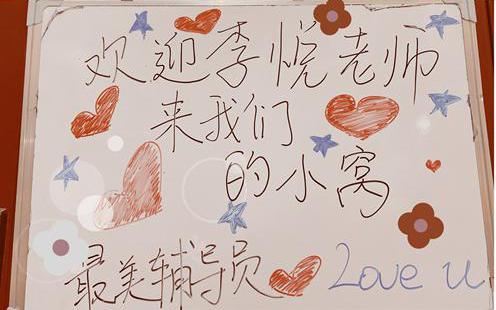 欢迎李悦老师
来我们
的小窝
最美辅导员 Love u